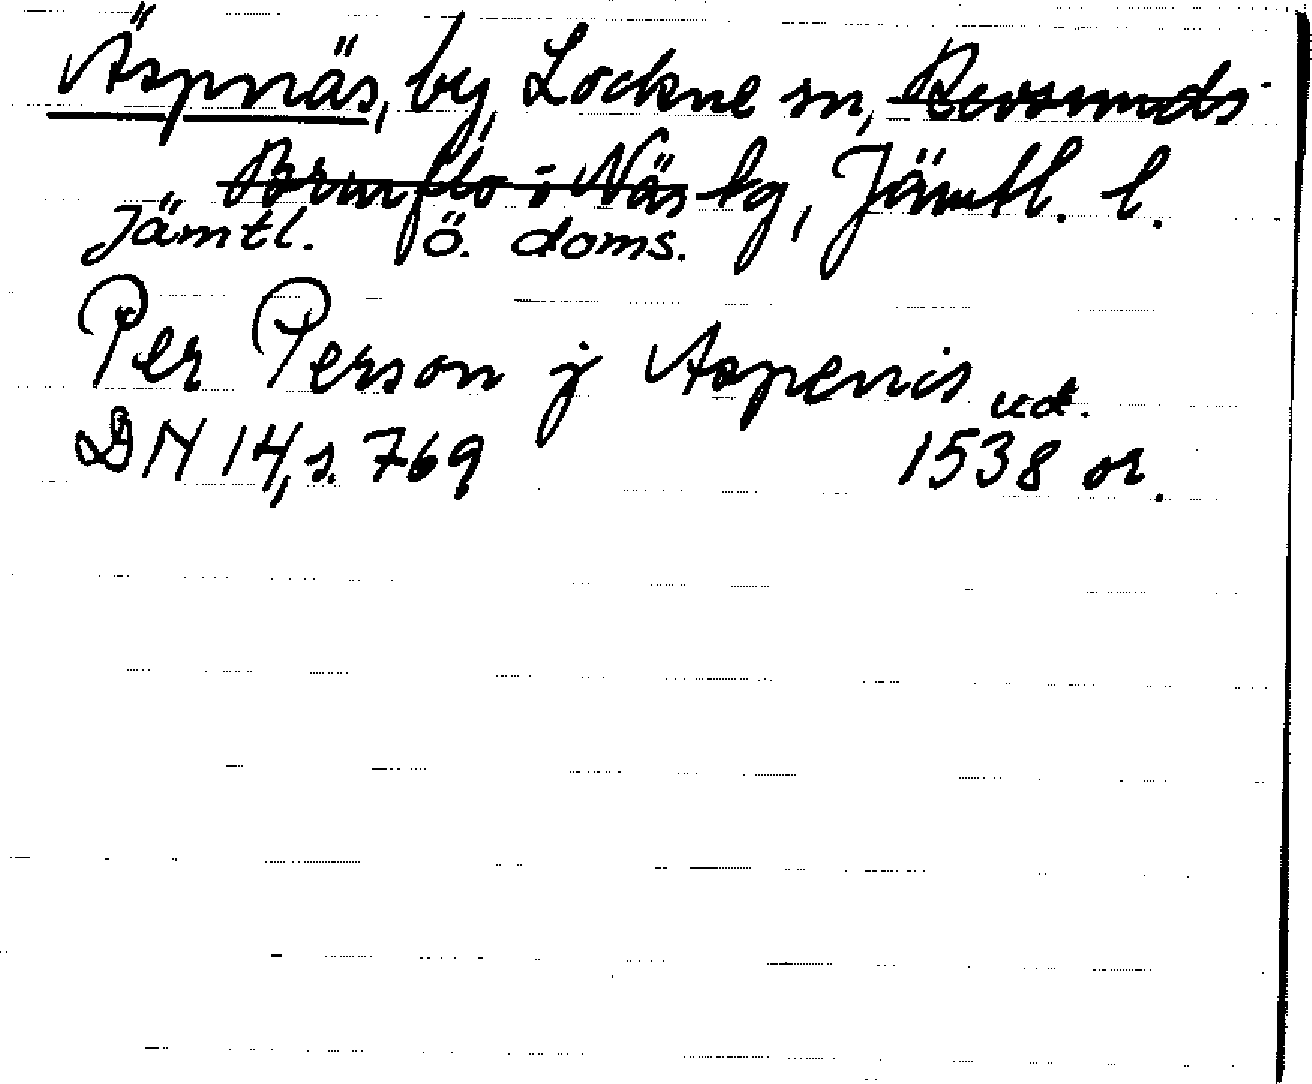 Äspnäs, by, Lockne sn, Revsunds
Brunflo o Näs tg, Jämtl. l.
Jämtl. Ö. doms.
Per Person j Aspenis
udt.
DN 14, s. 769 1538 or.